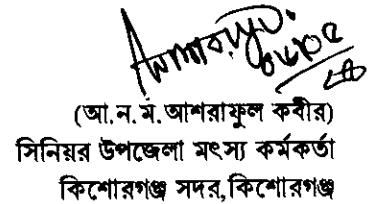 (আ.ন.ম.আশরাফুল কবীর)
সিনিয়র উপজেলা মৎস্য কর্মকর্তা
কিশোরগঞ্জ সদর,কিশোরগঞ্জ